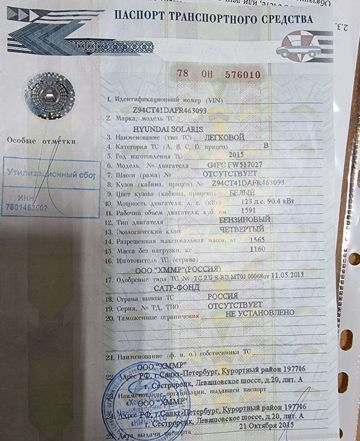 ПАСПОРТ ТРАНСПОРТНОГО СРЕДСТВА
78 ОН 576010
1. Идентификационный номер (VIN) Z94CT41DAFR463093
2. Марка, модель ТС HYUNDAI SOLARIS
3. Наименование (тип ТС) ЛЕГКОВОЙ
4. Категория ТС (А, В, С, D, прицеп) В
5. Год изготовления ТС 2015
6. Модель, № двигателя G4FC FW517027
7. Шасси (рама) № ОТСУТСТВУЕТ
8. Кузов (кабина, прицеп) № Z94CT41DAFR463093
9. Цвет кузова (кабины, прицепа) БЕЛЫЙ
10. Мощность двигателя, л. с. (кВт) 123 л.с. 90.4 кВт
11. Рабочий объем двигателя, куб. см 1591
12. Тип двигателя БЕНЗИНОВЫЙ
13. Экологический класс ЧЕТВЕРТЫЙ
14. Разрешенная максимальная масса, кг 1565
15. Масса без нагрузки, кг 1160
16. Изготовитель ТС (страна)
ООО "ХММР"(РОССИЯ)
17. Одобрение типа ТС № от 11.03.2015
САТР-ФОНД
18. Страна вывоза ТС РОССИЯ
19. Серия, № ТД, ТПО ОТСУТСТВУЕТ
20. Таможенные ограничения НЕ УСТАНОВЛЕНО
21. Наименование (ф. и. о.) собственника ТС
ООО "ХММР"
22. Адрес РФ, г.Санкт-Петербург, Курортный район 197706
г. Сестрорецк, Левашовское шоссе, д.20, лит. А
23. Наименование организации, выдавшей паспорт
ООО "ХММР"
24. Адрес РФ, г.Санкт-Петербург, Курортный район 197706
г. Сестрорецк, Левашовское шоссе, д.20, лит. А
25. Дата выдачи паспорта 21 Октября 2015
Особые отметки
Утилизационный сбор
ИНН
7801463902